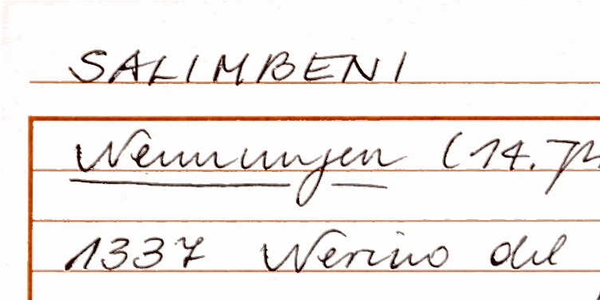 SALIMBENI
Nennungen (14.
1337 Nerino del